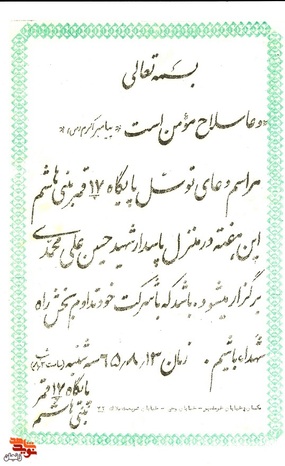 بسمه تعالی
«دعا سلاح مؤمن است» پیامبر اکرم (ص)
مراسم دعای توسل پایگاه ۱۷ قمر بنی هاشم
این هفته در منزل پاسدار شهید حسین علی محمدی
برگزار میشود باشد که با شرکت خود تداوم بخش راه
شهداء باشیم. زمان ۶۵٫۸٫۱۳ سه شنبه
پایگاه ۱۷ قمر
بنی هاشم